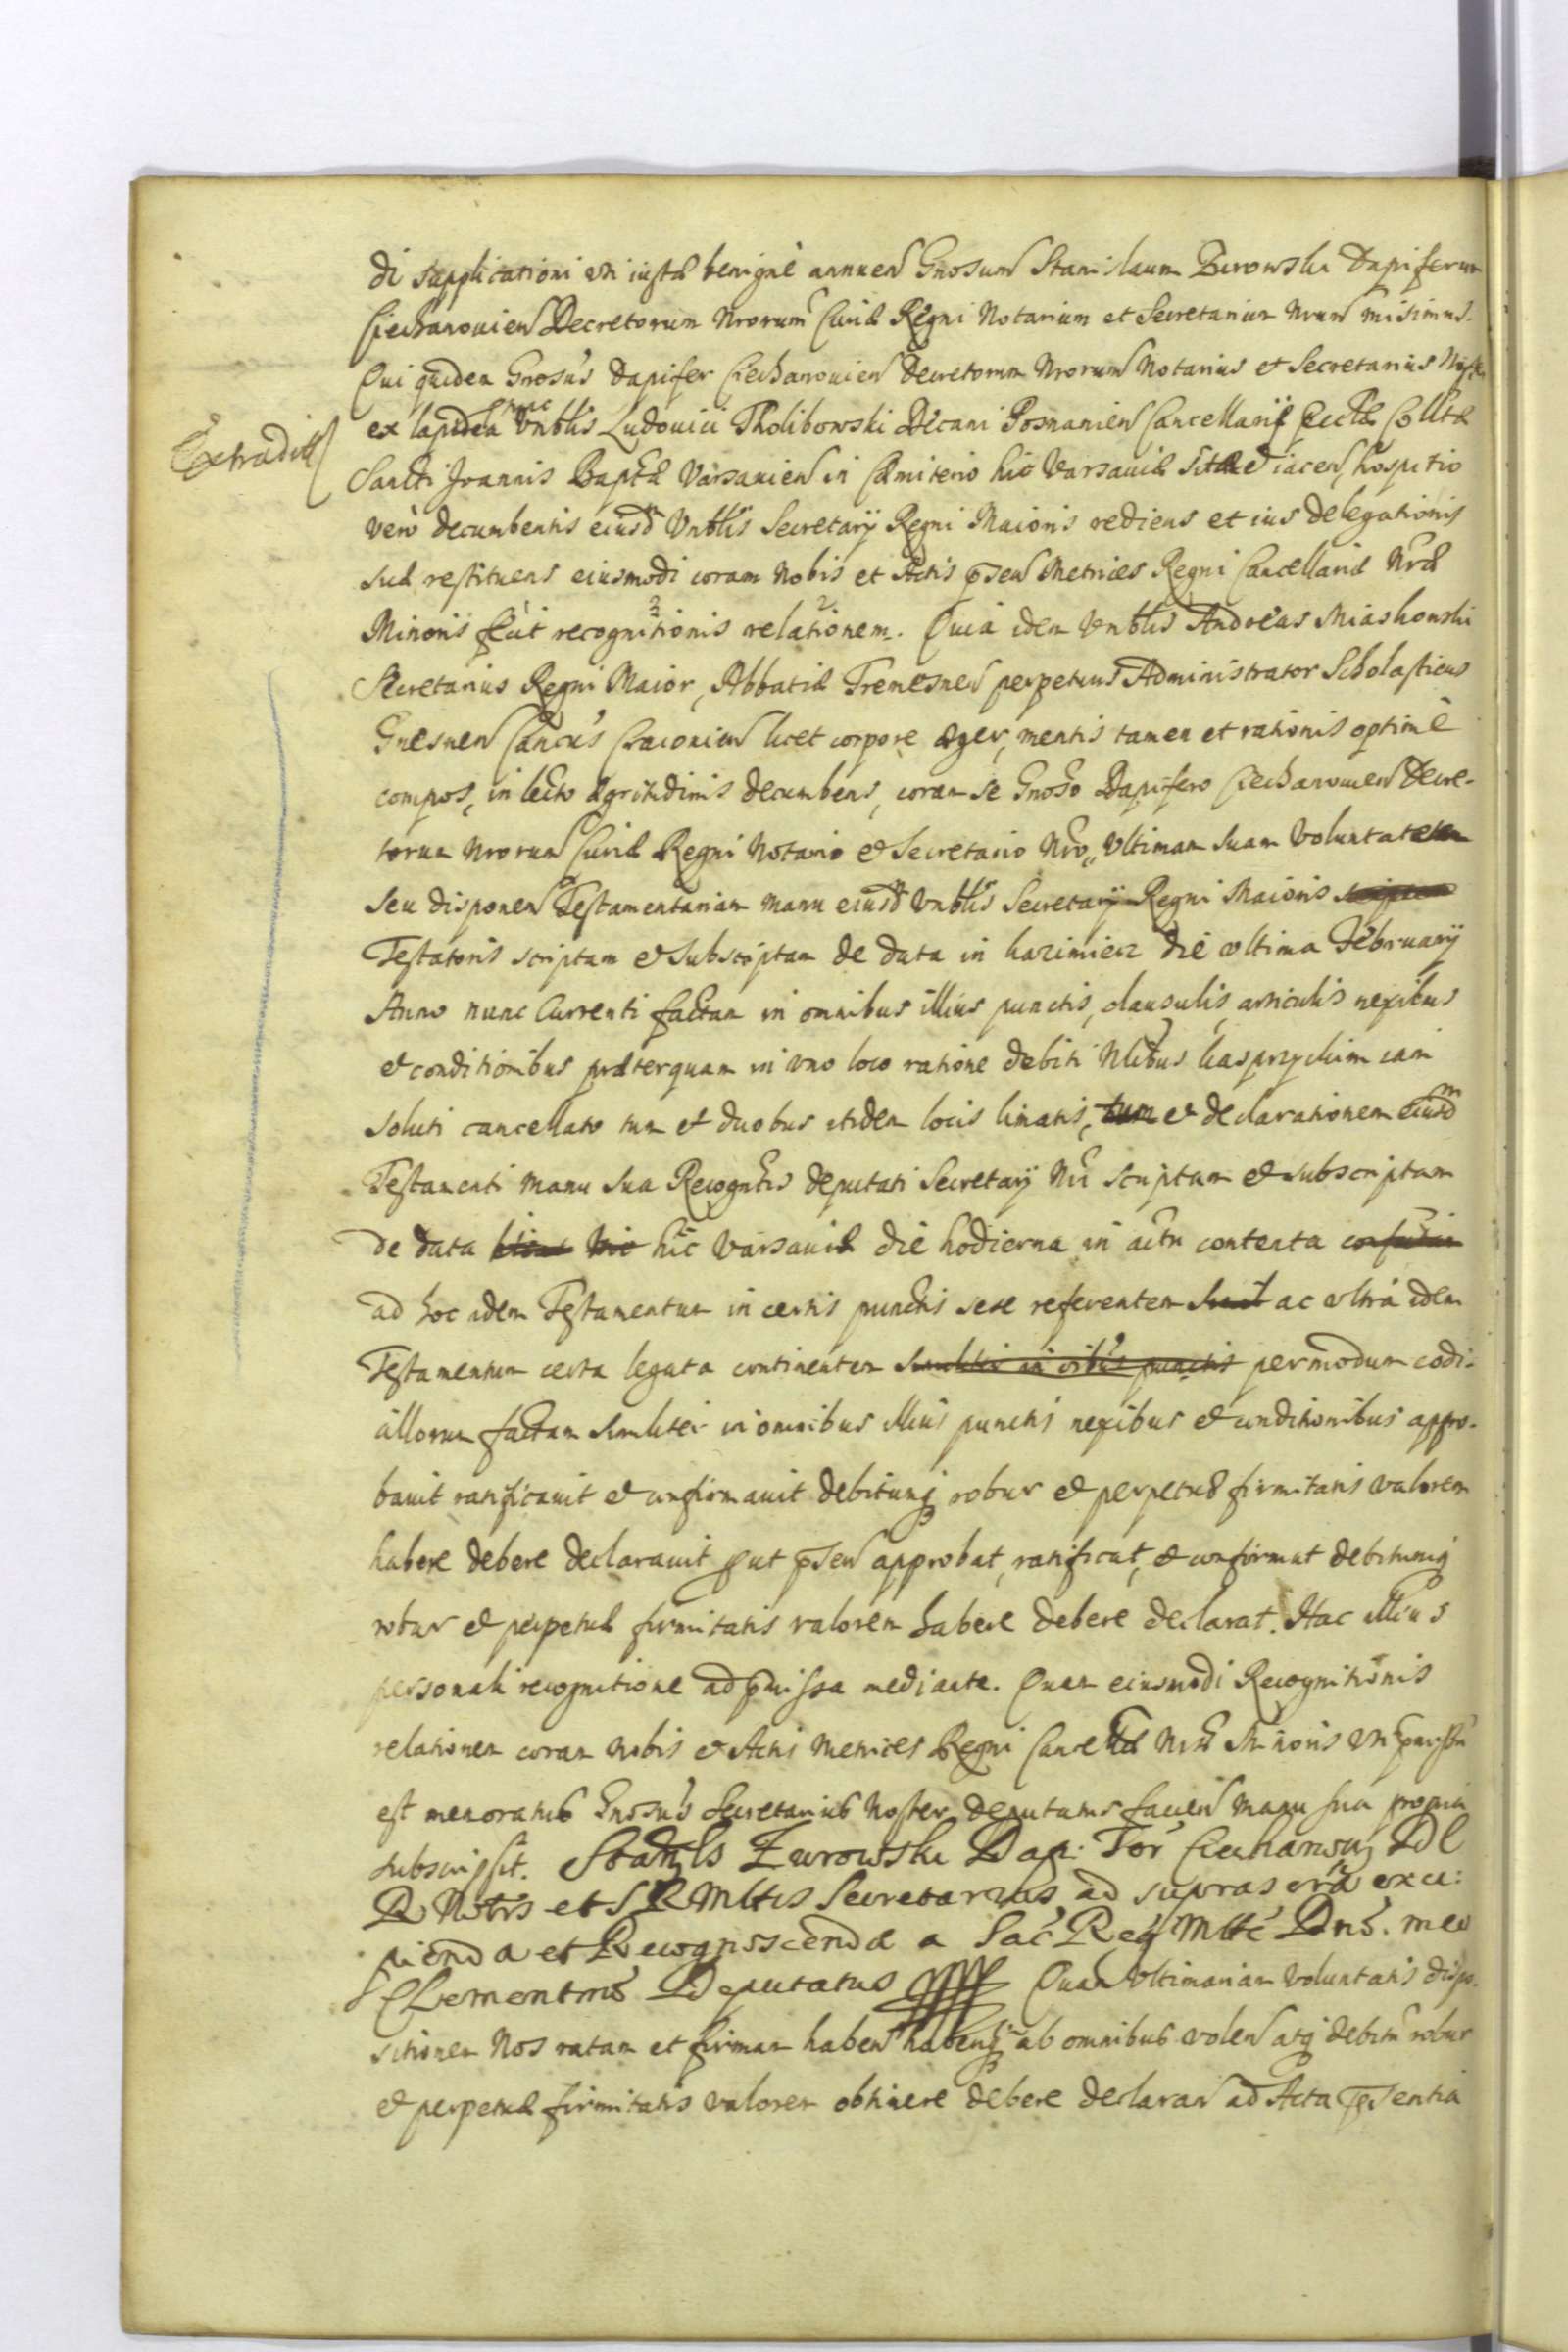 di supplicationi uti iustæ benignè annuen Gnosum Stanislaum Zurowski Dapiferum
Ciechanouien Decretorum Nrorum Curiæ Regni Notarium et Secretarium Nrum misimus.
Qui quidem Gnosus Dapifer Ciechanouien Decretorum Nrorum Notarius et Secretarius Noster
ex lapidea nunc Vnblis Ludouici Tholibowski Decani Posnanien Cancellarij Eccliæ Colltæ
Extradit
Sancti Joannis Baptæ Varsauien in Cæmiterio hic Varsauiæ sitæ et iacen, hospitio
vero decumbentis eiusdm Vnblis Secretarij Regni Maioris rediens et ius delegationis
suæ restituens eiusmodi coram Nobis et Actis psen Metrices Regni Cancellariæ Nræ
Minoris fecit recognitionis relationem. Quia idem Vnblis Andreas Miaskowski
Secretarius Regni Maior, Abbatiæ Tremesnen perpetuus Administrator Scholasticus
Gnesnen Cancus Cracouien licet corpore æger, mentis tamen et rationis optimè
compos, in lecto ægritudinis decumbens, coram se Gnoso Dapifero Ciechanouien Decre-
torum Nrorum Curiæ Regni Notario et Secretario Nro, Vltimam suam Voluntatem
seu disponen Testamentariam manu eiusdm Vnblis Secretarij Regni Maioris scriptam
Testatoris scriptam et subscriptam de data in Kazimierz die vltima February
Anno nunc Currenti factam in omnibus illius punctis, clausulis, articulis nexibus
et conditionibus præterquam in vno loco ratione debiti Nlibus Kasprzyckim iam
soluti cancellato tum et duobus itidem locis linatis, tum et declarationem eiusdm
Testamenti manu sua Recogntis deputati Secretarij Nri scriptam et subscriptam
de data hic hic Varsauiæ die hodierna in actu contenta
ad hoc idem Testamentum in certis punctis sese referentem ac vltrà idem
Testamentum certa legata continentem similiter in oibus punctis per modum codi-
cillorum factam similiter in omnibus illius punctis nexibus et conditionibus appro-
bauit ratificauit et confirmauit debitumq robur et perpetuæ firmitatis valorem
habere debere declarauit put psen approbat, ratificat, et confirmat debitumq
robur et perpetuæ firmitatis valorem habere debere declarat. Hac illius
personali recognitione ad pmissa mediante. Quam eiusmodi Recognitionis
relationem coram nobis et Actis Metrices Regni Cancellæ Nræ Minoris
est memoratus Gnosus Secretarius Noster deputatus facien manu sua propria
subscripsit. Stanls Zurowski Dap: Ciechanou
R Notrs et S R Mltis Secretarius, ad supras
pienda et Recognoscenda a Sac Reg Mtte Dno. meo
Clementmo Deputatus Quam Vltimariam Voluntatis dispo-
sitionem Nos ratam et firmam haben haberiq ab omnibus volen atq debitu robur
et perpetuæ firmitatis valorem obtinere debere declaran ad Acta psentia